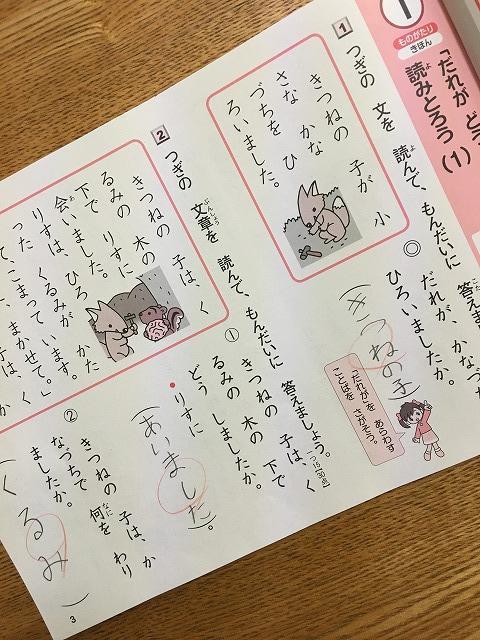 1
ものがたり
きほん
「だれが どう
読みとろう(1)
よ
1
つぎの 文を 読んで、もんだいに 答えま
きつねの 子が 小
さな かなづちを ひ
ろいました。
◎ だれが、かなづか
ひろいましたか。
(きつねの子)
「だれが」を あらわす
ことばを さがそう。
2
つぎの 文章を 読んで、もんだいに 答えましょう。
ぶんしょう
一つ15【30点】
きつねの 子は、く
るみの 木の 下で
りすに 会いました。
りすは、くるみが
① きつねの 子は、く
るみの 木の 下で
どう しましたか。
りすに
(あいました)。
② きつねの 子は、か
なづちで 何を わり
なに
ましたか。
(くるみ)
3